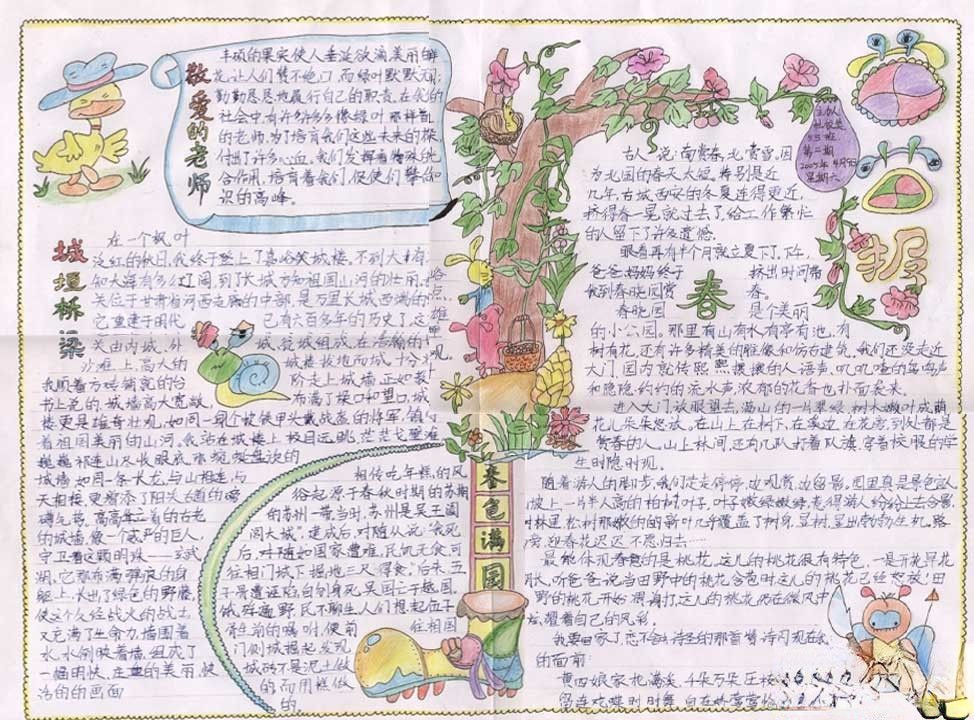 敬爱的老师
丰硕的果实使人垂涎欲滴,美丽的鲜
花让人们赞不绝口,而绿叶默默无
勤勤恳恳地履行自己的职责。在我的
社会中,有许许多多像绿叶那样普
的老师,为了培育我们这些未来的
付出了许多心血。我们发挥着
合作用,培育着我们,促使们攀
识的高峰。
城垣桥梁
在一个枫叶
红的秋日,我终于登上了嘉峪关城楼。不到大
知大海有多么辽阔,到了长城方知祖国山河的壮丽。
关位于甘肃省河西走廊的中部,是万里长城西端的
它重建于明代 已有六百多年的历史了。这
关由内城、外 城、瓮城组成,在浩瀚的
沙滩上,高大的 城楼拔地而城,十分
我顺着方砖铺就的台 阶走上城墙,正如
书上说的,城墙高大宽敞, 布满了垛口和望口,城
楼更是雄奇壮观,如同一个个披铁甲头戴战盔的将军,镇守
着祖国美丽的山河。我站在城楼上极目远眺,茫茫戈壁
巍巍祁连山尽收眼底,
城墙如同一条长龙,与山相连,与
天相接,更增添了阳关古道的
礴气势。高高耸立着的古老
的城墙,像一个威严的巨人,
守卫着这颗明珠——玄武
湖。它那布满弹痕的身
躯上,长出了绿色的野藤,
使这个久经战火的战士
又充满了生命力。墙围着
水,水倒映着墙,组成了
一幅明快、庄重的美丽、
洁的画面
相传吃年糕的风
俗起源于春秋时期的苏
的苏州一带。当时,苏州是吴王阖
闾大城”。建成后,对随从说:“我死
后,对随如国家遭难,民饥无食,可
往相门城下掘地三尺得食。”后来,五
子胥遭诬陷自刎身死,吴国亡于越国,
饿殍遍野,民不聊生,人们想起伍子
胥生前的嘱咐,便前 往相国
门侧城掘起,发现
城砖不是泥土做
的,而用糕做
的。
春色满园
主办人
班
第二期
2005年4月9日
星期六
古人说:“南赏春,北赏雪。”因
为北国的春天太短,特别是近
几年,古城西安的冬夏连得更近,
挤得春一晃就过去了,给工作繁忙
的人留下了许多遗憾。
眼看再有半个月就立夏下了。下午,
爸爸妈妈终于 挤出时间带
我到春晓园赏 春。
春
春晓园 是个美丽
的小公园。那里有山有水,有亭有池,有
树有花,还有许多精美的雕像和仿古建筑,我们还没走近
大门,园内就传来熙熙攘攘的人语声、叽叽喳喳的鸟鸣声
和隐隐约约的流水声,浓郁的花香也扑面袭来。
进入大门,放眼望去,满山的一片翠绿,树木嫩叶成荫,
花儿朵朵怒放。在山上,在树下,在溪边,在花旁,到处都是
赏春的人。山上林间,还有几队打着队旗、穿着校服的学
生时隐时现。
随着游人的脚步,我们走走停停,边观赏,边留影。园里真是景色迷人
坡上,一片半人高的柏树叶子,叶子嫩绿嫩绿,惹得游人纷纷上去合影。
林里,松树那嫩的的新叶几乎覆盖了树身,呈树,呈出勃勃生机。路
旁,迎春花迟迟不愿归去……
最能体现春意的是桃花。这儿的桃花很有特色,一是开花早花
期长。听爸爸说,当田野中的桃花含苞时,这儿的桃花已经怒放!田
野的桃花开始凋谢了,这儿的桃花仍在微风中
炫耀着自己的风彩。
我要回家了,恋恋不舍,诗圣的那首赏诗闪现在我
的面前:
黄四娘家花满溪,千朵万朵压枝
留连戏蝶时时舞,自在娇莺恰恰